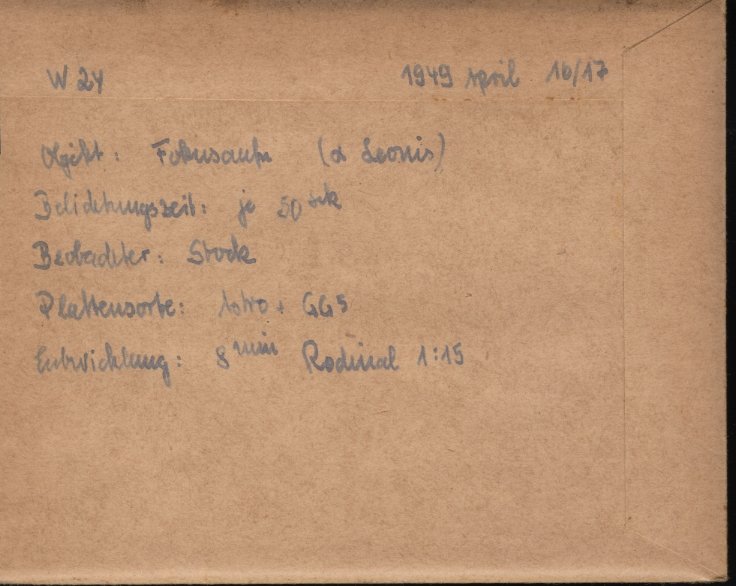 W 24 1949 April 16/17
Objekt: Fokusaufn (α Leonis)
Belichtungszeit: je 50 sek
Beobachter: Stock
Plattensorte: Astro + GG5
Entwicklung: 8 min Rodinal 1:15